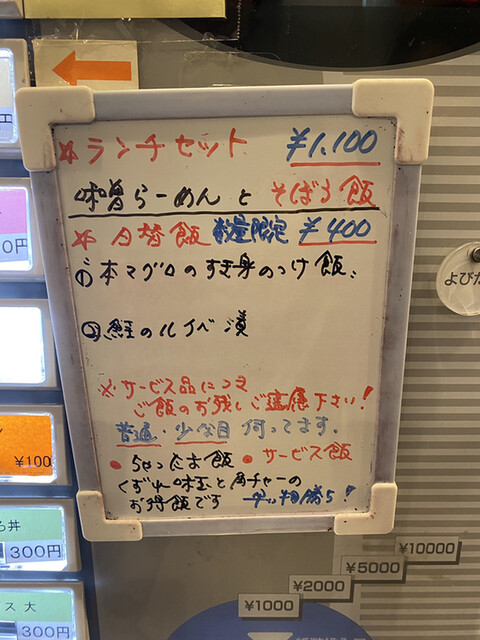 ※ランチセット ¥1,100
味噌らーめんと そぼろ飯
※日替飯 数量限定 ¥400
①本マグロのすき身のつけ飯、
②鮭のルイベ漬
※サービス品につき
ご飯のお残しご遠慮下さい!
普通・少な目 伺ってます。
●ちゃったま飯 ●サービス飯
くずれ味玉と角チャーの
お得飯です 早い者勝ち!
円
¥100
300円
ス 大
300円
よびた
¥10000
¥5000
¥2000
¥1000